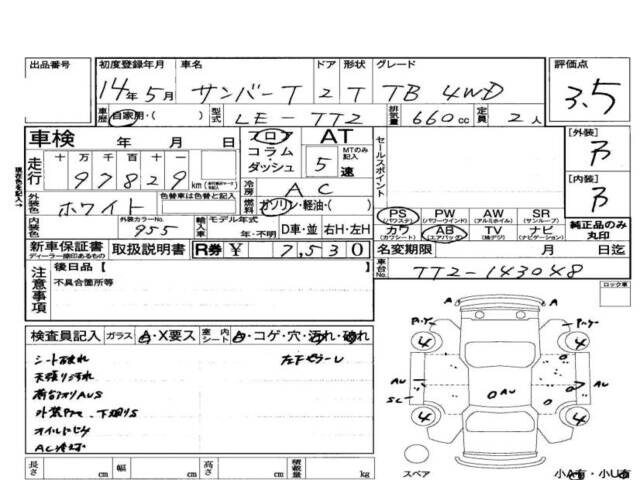 出品番号 初度登録年月 車名 ドア 形状 グレード 評価点
14年5月 サンバーT 2 T TB 4WD 3.5
車歴 自家用・( ) 型式 LE-TT2 排気量 660cc 定員 2人
車検 年 月 日 フロア AT
コラム・ダッシュ MTのみ記入 5速
セールスポイント
[外装] B
[内装] B
純正品のみ丸印
現在色を記入→
走行 十 万 千 百 十 一
97829 km
冷房 AC
外装色 ホワイト 色替車は色替と記入
燃料 ガソリン・軽油・( )
内装色 外装カラーNo. 955 輸入車 モデル年式 年・不明 D車・並 右H・左H
PS (パワステ) PW (パワーウインド) AW (アルミホイル) SR (サンルーフ)
カワ (カワシート) AB (エアバッグ) TV (純テレビ) ナビ (ナビゲーション)
新車保証書 ディーラー捺印あるもの 取扱説明書 R券 ¥ 7,530 名変期限 月 日迄
注意事項 後日品【 】 車台No. TT2-143048
不具合箇所等
ロック車
検査員記入 ガラス A・X要ス 室内シート A・コゲ・穴・汚れ・破れ
シート破れ
天張り汚れ
荷台アオリAUS
下廻りS
A A
4 4
AU AU AU
4 4
長さ cm 幅 cm 高さ cm 積載量 kg
スペア 小A有・小U有